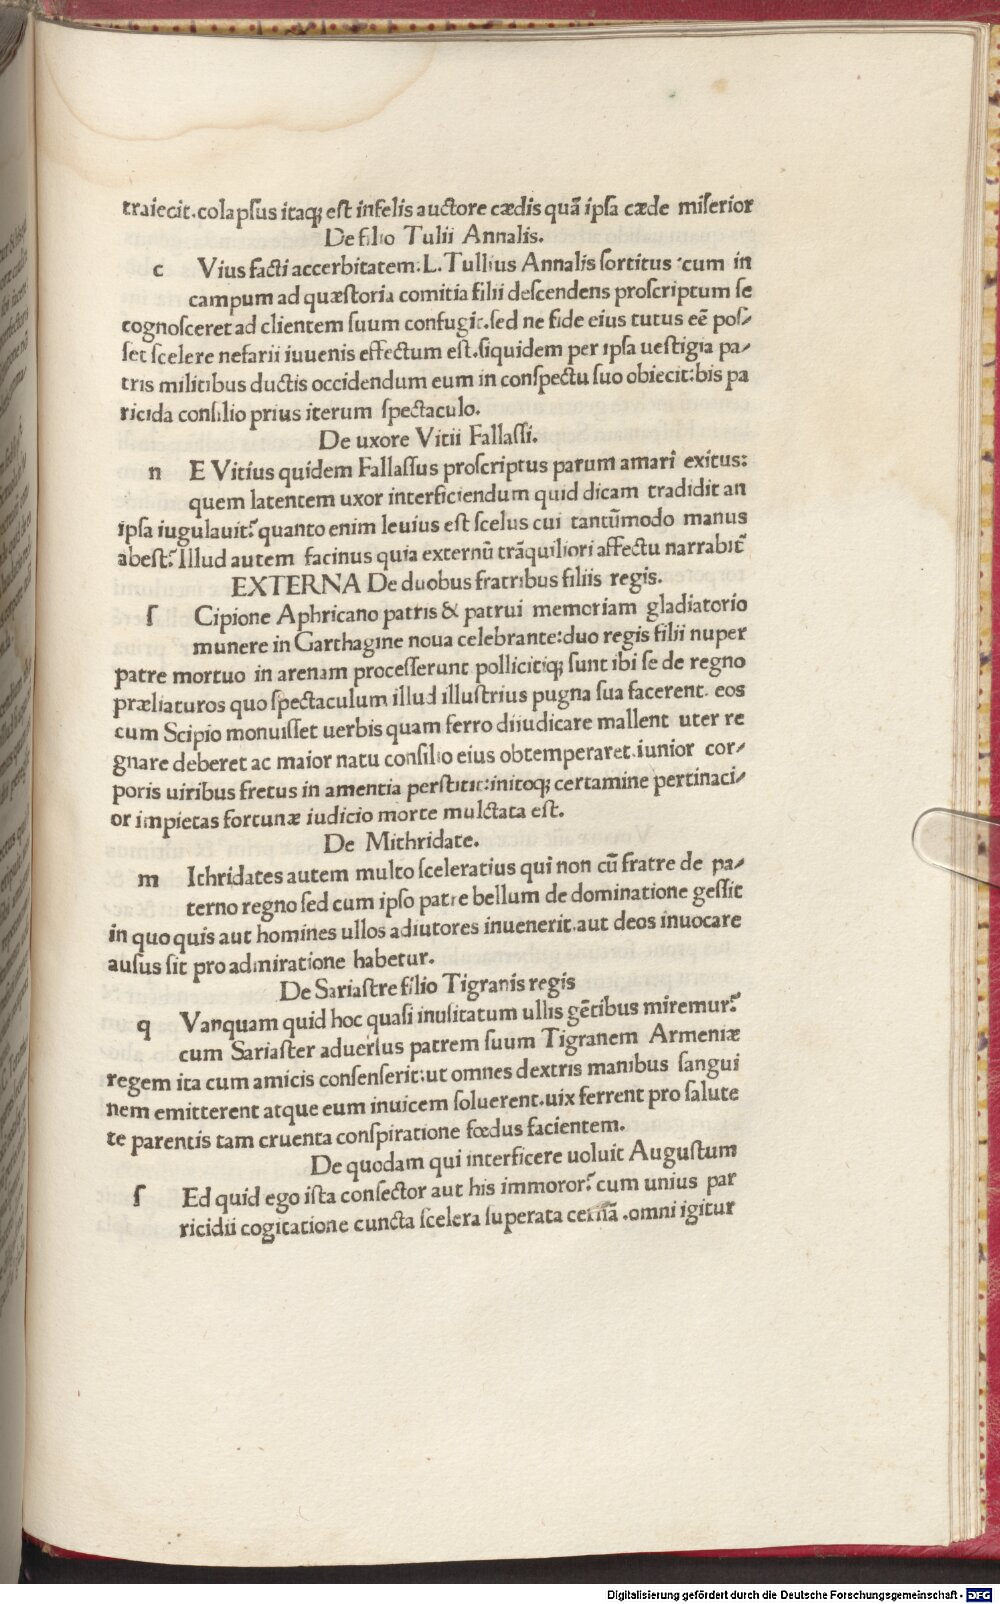 traiecit.colapsus itaqꝫ est infelis auctore cædis quã ipsa cæde miserior
De filio Tulii Annalis.
c Vius facti accerbitatem.L.Tullius Annalis sortitus cum in
campum ad quæstoria comitia filii descendens proscriptum se
cognosceret ad clientem suum confugit.sed ne fide eius tutus eẽ pos/
set scelere nefarii iuuenis effectum est.siquidem per ipsa uestigia pa/
tris militibus ductis occidendum eum in conspectu suo obiecit:bis pa
ricida consilio prius iterum spectaculo.
De uxore Vitii Fallassi.
n E Vitius quidem Fallassus proscriptus parum amari exitus:
quem latentem uxor interficiendum quid dicam tradidit an
ipsa iugulauit? quanto enim leuius est scelus cui tantũmodo manus
abest? Illud autem facinus quia externũ trãquiliori affectu narrabit᷑
EXTERNA De duobus fratribus filiis regis.
ſ Cipione Aphricano patris & patrui memoriam gladiatorio
munere in Carthagine noua celebrante:duo regis filii nuper
patre mortuo in arenam processerunt pollicitiqꝫ sunt ibi se de regno
præliaturos quo spectaculum illud illustrius pugna sua facerent. eos
cum Scipio monuisset uerbis quam ferro diiudicare mallent uter re
gnare deberet ac maior natu consilio eius obtemperaret.iunior cor/
poris uiribus fretus in amentia perstitit:initoqꝫ certamine pertinaci/
or impietas fortunæ iudicio morte mulctata est.
De Mithridate.
m Ithridates autem multo sceleratius qui non cũ fratre de pa/
terno regno sed cum ipso patre bellum de dominatione gessit
in quo quis aut homines ullos adiutores inuenerit.aut deos inuocare
ausus sit pro admiratione habetur.
De Sariastre filio Tigranis regis
q Vanquam quid hoc quasi inusitatum ullis gẽtibus miremur?
cum Sariaster aduersus patrem suum Tigranem Armeniæ
regem ita cum amicis consenserit:ut omnes dextris manibus sangui
nem emitterent atque eum inuicem soluerent.uix ferrent pro salute
te parentis tam cruenta conspiratione fœdus facientem.
De quodam qui interficere uoluit Augustum
ſ Ed quid ego ista consector aut his immoror? cum unius par
ricidii cogitatione cuncta scelera superata cernã .omni igitur
Digitalisierung gefördert durch die Deutsche Forschungsgemeinschaft - DFG